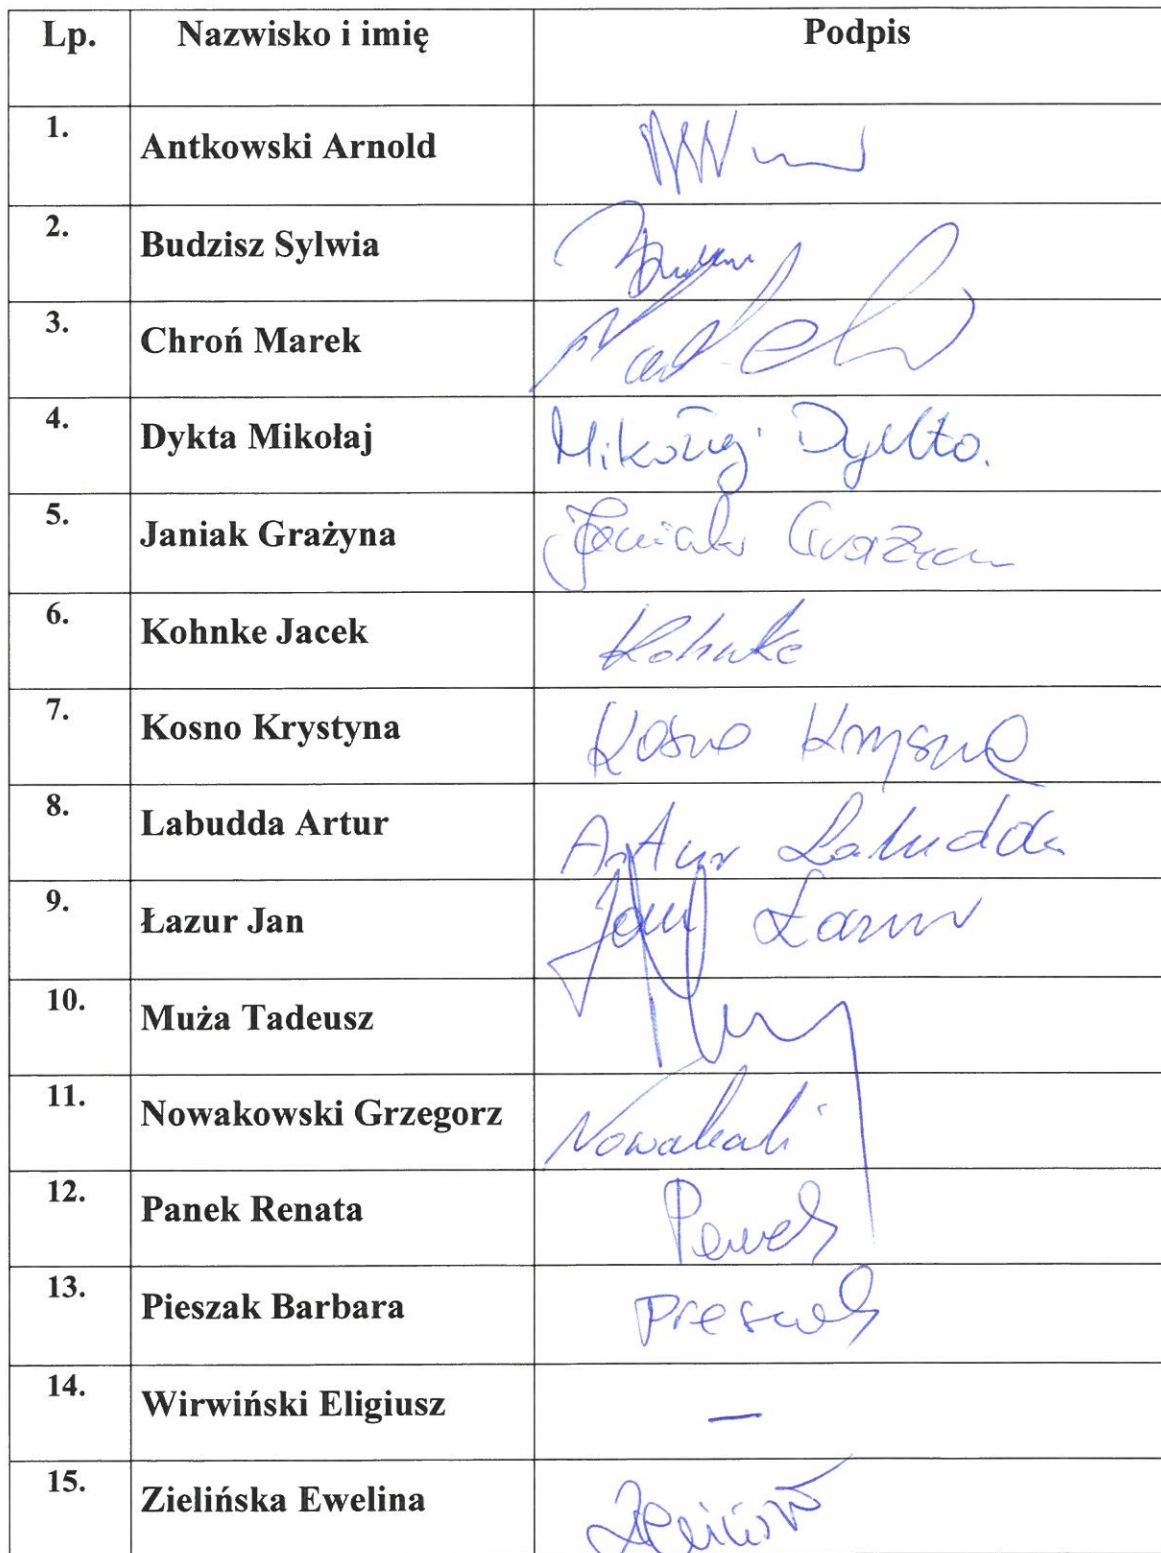 Lp. Nazwisko i imię Podpis
1. Antkowski Arnold
2. Budzisz Sylwia
3. Chroń Marek
4. Dykta Mikołaj Mikołaj Dykta.
5. Janiak Grażyna Janiak Grażyna
6. Kohnke Jacek Kohnke
7. Kosno Krystyna Kosno
8. Labudda Artur Artur Labudda
9. Łazur Jan Jan Łazur
10. Muża Tadeusz
11. Nowakowski Grzegorz
12. Panek Renata Panek
13. Pieszak Barbara Pieszak
14. Wirwiński Eligiusz —
15. Zielińska Ewelina